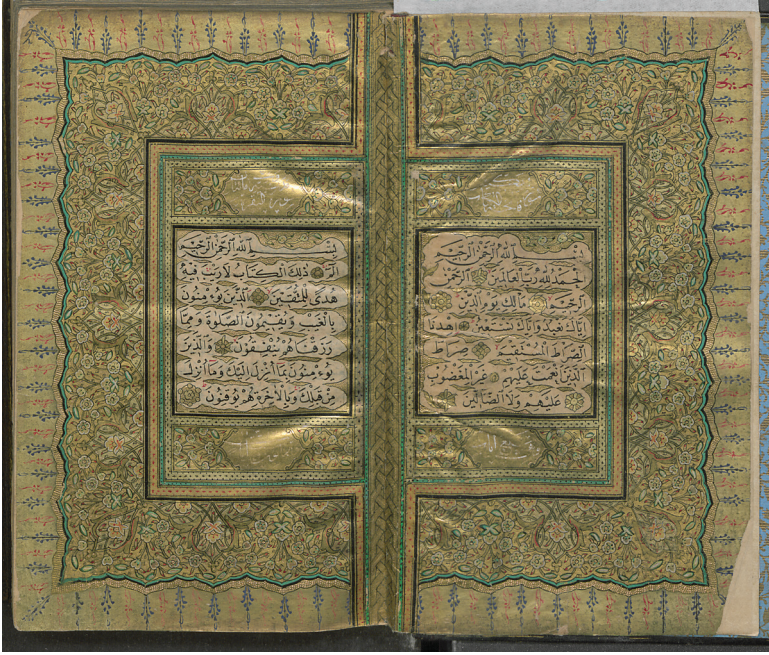 بِسْمِ اللهِ الرَّحْمٰنِ الرَّحِيمِ
اَلْحَمْدُ لِلّٰهِ رَبِّ الْعَالَمِينَ اَلرَّحْمٰنِ
الرَّحِيمِ مَالِكِ يَوْمِ الدِّينِ
اِيَّاكَ نَعْبُدُ وَاِيَّاكَ نَسْتَعِينُ اِهْدِنَا
الصِّرَاطَ الْمُسْتَقِيمَ صِرَاطَ
الَّذِينَ اَنْعَمْتَ عَلَيْهِمْ غَيْرِ الْمَغْضُوبِ
عَلَيْهِمْ وَلَا الضَّالِّينَ
بِسْمِ اللهِ الرَّحْمٰنِ الرَّحِيمِ
الٓمٓ ذٰلِكَ الْكِتَابُ لَا رَيْبَ فِيهِ
هُدًى لِلْمُتَّقِينَ اَلَّذِينَ يُؤْمِنُونَ
بِالْغَيْبِ وَيُقِيمُونَ الصَّلٰوةَ وَمِمَّا
رَزَقْنَاهُمْ يُنْفِقُونَ وَالَّذِينَ
يُؤْمِنُونَ بِمَا اُنْزِلَ اِلَيْكَ وَمَا اُنْزِلَ
مِنْ قَبْلِكَ وَبِالْاٰخِرَةِ هُمْ يُوقِنُونَ